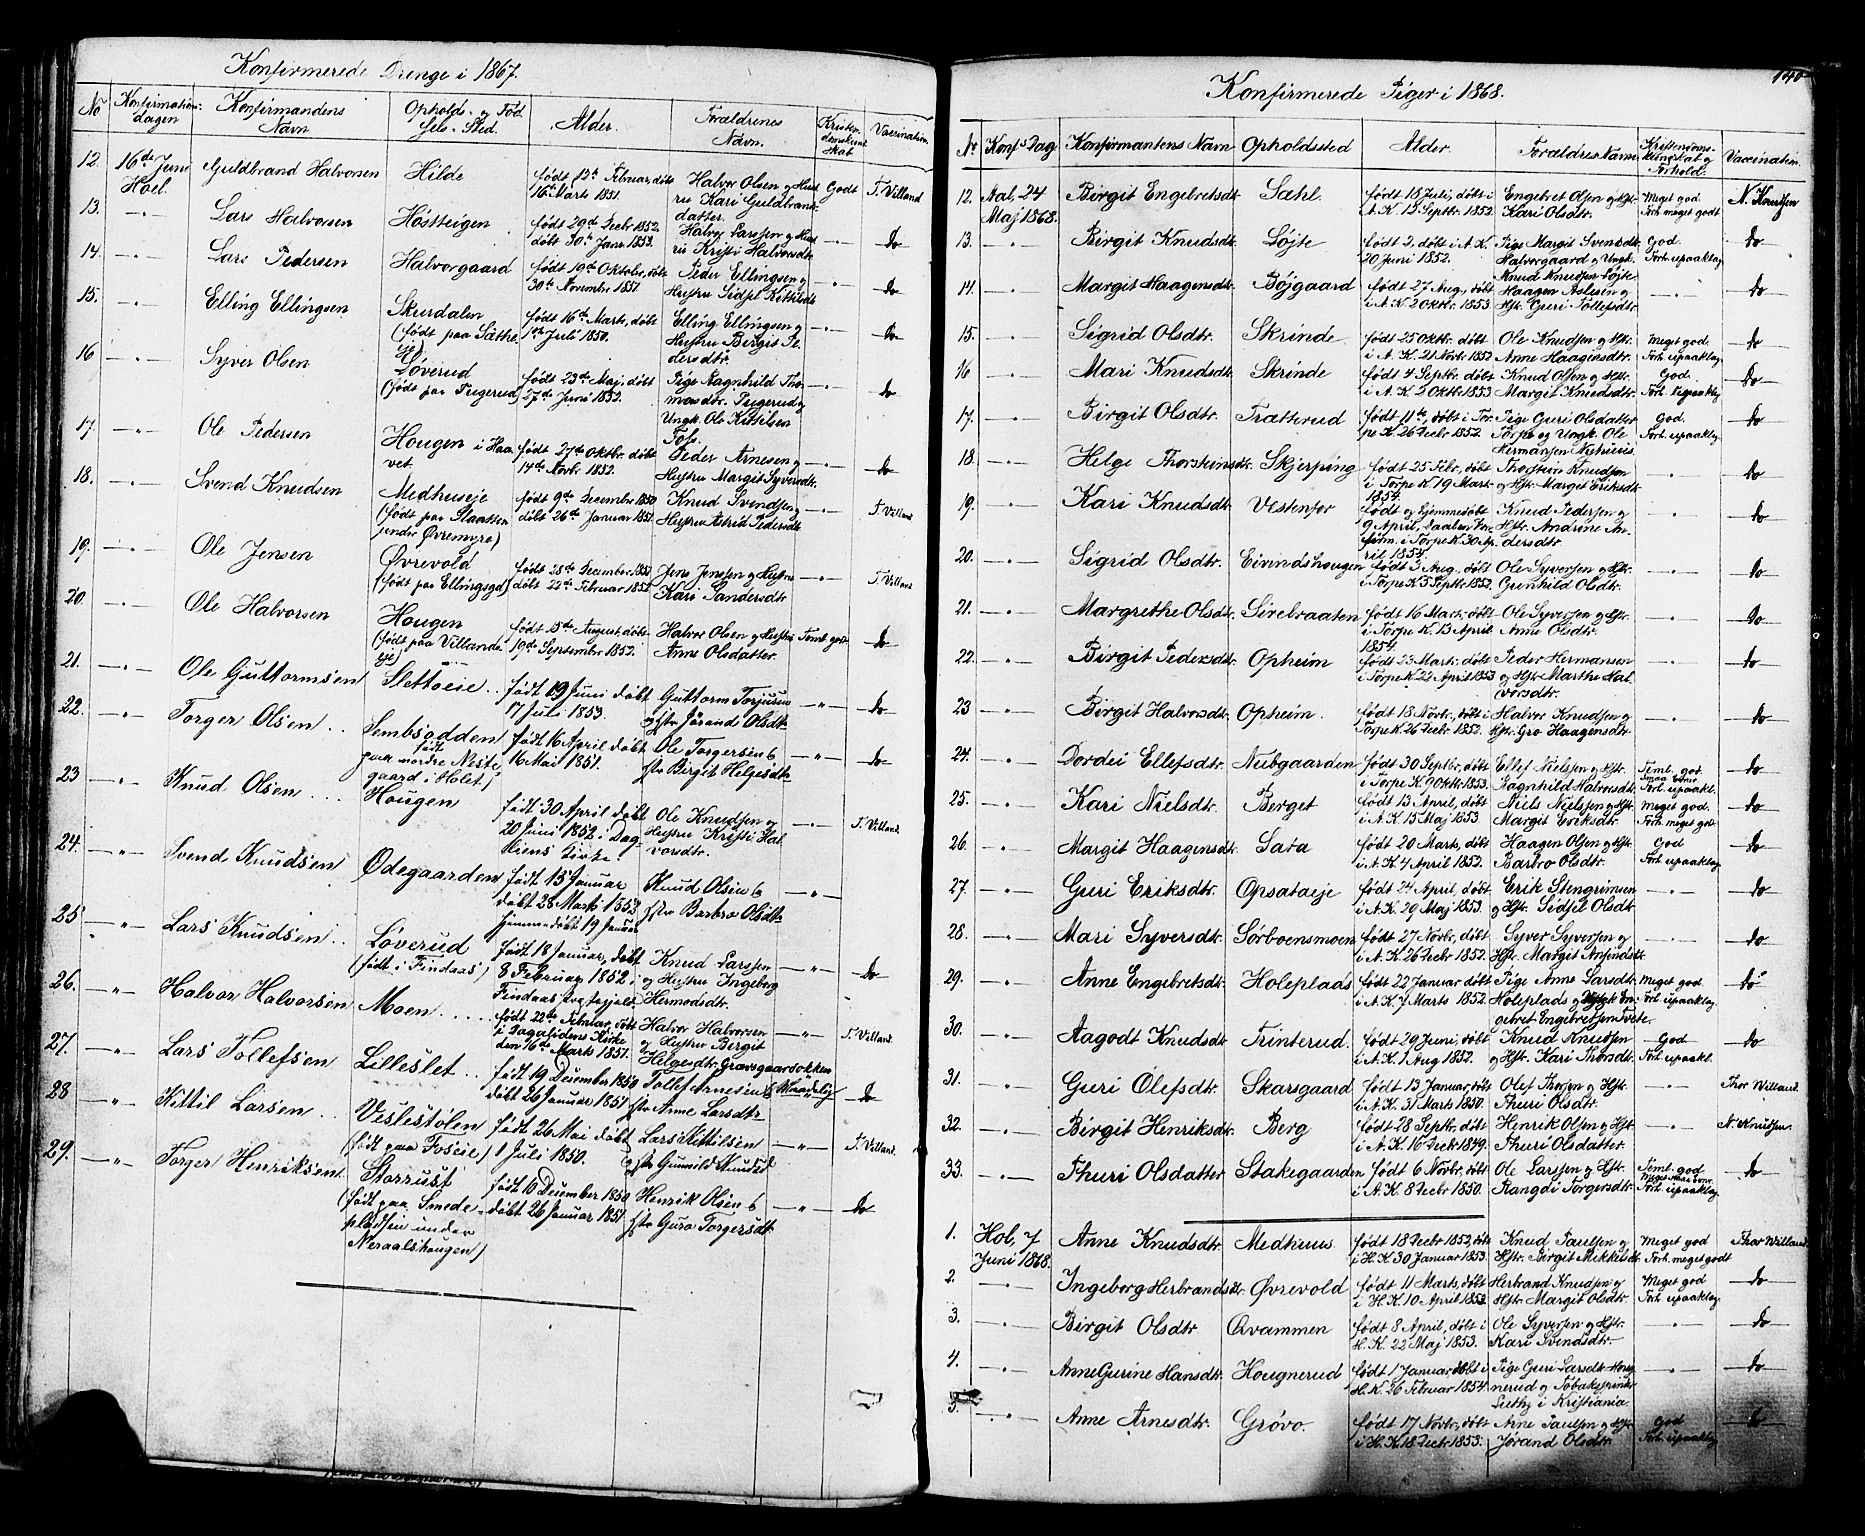 Konfirmerede Drenge i 1867.
No Konfirmations-dagen Konfirmandens Navn Opholds- og Fødsels-Sted. Alder. Forældrenes Navn. Kristendomskundskab Vaccination.
12. 16de Juni Hoel. Guldbrand Halvorsen Hilde født 12te Februar, døbt 16de Marts 1851. Halvor Olsen og Hustru Kari Guldbrandsdatter. Godt T. Villand
13. —„— Lars Halvorsen Høsteigen født 29de Decbr 1852, døbt 30te Janr. 1853. Halvor Larssen og Hustru Kristi Halvorsdtr. —„— do
14. —„— Lars Pedersen Halvorgaard født 19de Oktober, døbt 30te November 1851. Peder Ellingsen og Hustru Sidsel Kittilsdtr —„— do
15. —„— Elling Ellingsen Skurdalen (født paa Sætheeje) født 16de Marts, døbt 1ste Juli 1850. Elling Ellingsen og Hustru Birgit Pedersdtr —„— do
16 —„— Syver Olsen Løverud (født paa Tugerud) født 23de Maj, døbt 27de Juni 1852. Pige Ragnhild Thomasdtr. Tugerud og Ungk. Ole Kittilsen Fos. —„— do
17. —„— Ole Pedersen Hougen i Haavet. født 27de Oktbr. døbt 14de Novbr. 1852. Peder Arnesen og Hustru Margit Syversdtr. —„— do
18. —„— Svend Knudsen Medhuseje (født paa Slaatten under Øvremyre) født 9de December 1850 døbt 26de Januar 1851. Knud Svendsen og Hustru Astrid Pedersdt —„— T. Villand
19. —„— Ole Jensen Øvrevold (født paa Ellingsgd) født 28de December 1851 døbt 22de Februar 1852. Jens Jenssen og Hustru Kari Sandersdtr —„— T. Villand
20. —„— Ole Halvorsen Hougen (født paa Villandeje) født 15de August, døbt 19de September 1852. Halvor Olsen og Hustru Anne Olsdatter. Teml. godt do
21. —„— Ole Guttormsen Slettoeie.. født 19 Juni døbt 17 Juli 1853. Guttorm Torjusen og Hstr Jørande Olsdtr —„— do
22. —„— Torger Olsen .. Sembsodden født paa nordre Nestegaard i Holet) født 16 April døbt 16 Mai 1851. Ole Torgersen & Hstr Birgit Helgesdtr —„— do
23 —„— Knud Olsen .... Hougen født 30 April døbt 20 Juni 1852 i Dagliens Kirke. Ole Knudsen og Hustru Kristi Halvorsdtr. —„— T. Villand
24. —„— Svend Knudsen Ødegaarden født 15 Januar døbt 28 Marts 1852 Hjemmedøbt 19 Januar Knud Olsen & Hstr Barbro Olsdt —„—
25 —„— Lars Knudsen.. Løverud (født i Findaas) født 18 Januar, døbt 8 Februar 1852, i Findaas Knud Larssen og Hustru Ingeborg Hermodsdtr. —„— do
26. —„— Halvor Halvorsen Moen..... født 22de Februar, døbt i Dagalidens Kirke den 16de Marts 1851. Halvor Halvorsen og Hustru Bergit Helgesdtr. Gravsgaardsokken —„— T. Villand.
27. —„— Lars Tollefsen Lilleslet.. født 19 December 1850 døbt 26 Januar 1851 Tollef Arnesen & Hstr Anne Larsdtr Maadelig do
28 —„— Kittil Larsen .. Veslestolen (født paa Foseie) født 26 Mai døbt 1 Juli 1850. Lars Kittilsen og Hstr Gunnild Knudsd —„— T. Villand.
29. —„— Torger Henriksen Storrust (født paa Smedepladsen under Neraalshougen) født 10 December 1850 døbt 26 Januar 1851 Henrik Olsen & Hstr Guro Torgersdt —„— do
140
Konfirmerede Piger i 1868.
No. Konfs Dag Konfirmantens Navn Opholdssted Alder. Forældres Navn Kristendomskundskab og Forhold. Vaccination.
12. Aal, 24 Maj 1868. Birgit Engebretsdt. Sæhl. født 18 Juli, døbt i A. K. 12 Septbr. 1852. Engebret Olsen og Hstr. Kari Olsdtr. Meget god Forh. meget godt N. Knutsen
13. —„— Birgit Knudsdt. Løjte født 2, døbt i A. K. 20 Juni 1852. Pige Margit Svensdt. Halvorgaard og Ungk. Knud Knudsen Løjte God. Forh. upaaklag do
14. —„— Margit Haagensdt. Bøjgaard født 27 Aug, døbt i A. K. 2 Oktbr. 1853. Haagen Aslesen og Hstr. Guri Tollefsdtr. —„— do
15. —„— Sigrid Olsdtr. Skrinde født 25 Oktbr. døbt i A. K. 21 Novbr. 1852 Ole Knudsen og Hstr. Anne Haagensdtr. Meget god. Forh. upaaklag do
16 —„— Mari Knudsdt. Skrinde født 4 Septbr. døbt i A. K. 2 Oktbr. 1853 Knud Olsen og Hstr. Margit Knudsdtr. God. Forh. upaaklag do
17. —„— Birgit Olsdtr. Trætterud født 11te, døbt i Torpe K. 26 Decbr 1852. Pige Guri Olsdatter Torpe og Ungk. Ole Hermansen Nyhuus. God. Forh. upaaklag. do
18. —„— Helge Thorsteinsdt. Skjerping født 25 Febr, døbt i Torpe K 19 Marts 1854. Thorstein Knudsen og Hstr. Margit Eriksdt. —„— do
19. —„— Kari Knudsdt. Vestenfor født og hjemmedøbt 9 April, Daaben kon- i Torpe K. 30 April 1854. Knud Pedersen og Hstr. Andrine Andersdtr. —„— do
20. —„— Sigrid Olsdtr. Eivindshougen født 3 Aug., døbt i Torpe K. 5 Septbr 1852. Ole Syversen og Hstr. Gunhild Olsdtr. —„— do
21. —„— Margrethe Olsdt. Sirebraaten født 16 Marts, døbt i Torpe K. 13 April 1854. Ole Syversen og Hstr. Anne Olsdtr. —„— do
22. —„— Birgit Pedersdt. Opheim født 23 Marts, døbt i Torpe K. 22 April 1853 Peder Hermansen og Hstr Marthe Halvorsdtr. —„— do
23 —„— Birgit Halvorsdt. Opheim. født 18 Novbr., døbt i Torpe K. 26 Decbr 1852. Halvor Knudsen og Hstr. Gro Haagensdtr. —„— do
24. —„— Dordei Ellefsdtr. Nubgaarden født 30 Septbr., døbt i Torpe K. 9 Oktbr 1853. Ellef Nielsen og Hstr. Ragnhild Halvorsdtr Teml. god smaa Evner. Forh. upaakl. do
25. —„— Kari Nielsdtr. Berget født 13 April, døbt i A. K. 15 Maj 1853 Niels Nielssen og Hstr. Margit Eriksdtr. Meget god. Forh. meget godt do
26. —„— Margit Haagensdt. Sara født 20 Marts, døbt i A. K. 4 April 1852. Haagen Olsen og Hstr. Barbro Olsdtr. God Forh. upaaklag do
27. —„— Guri Eriksdtr. Opsataeje født 24 April, døbt i A. K. 29 Maj 1853. Erik Stengrimsen og Hstr. Sidsel Olsdtr. —„— do
28. —„— Mari Syversdtr. Sørboensmoen født 27 Novbr., døbt i A. K. 26 Decbr 1852. Syver Syversen og Hstr. Margit Arnfindsdtr —„— do
29. —„— Anne Engebretsdt. Holeplads født 22 Januar døbt i A. K. 7 Marts 1852. Pige Anne Larsdt. Holeplads og Ungk Engebret Engebretsen Tvete. Meget god Forh. upaaklag do
30. —„— Aagodt Knudsdt. Trinterud. født 29 Juni, døbt i A. K. 1 Aug 1852. Knud Knudsen og Hstr. Kari Thorsdt. God Forh. upaakl. do
31. —„— Guri Olefsdtr. Skarsgaard født 13 Januar, døbt i A. K. 31 Marts 1850. Olef Thorsen og Hstr. Thuri Olsdtr. —„— Thor Willand.
32. —„— Birgit Henriksdt. Berg født 28 Septbr. døbt i A. K. 16 Decbr 1849. Henrik Olsen og Hstr Thuri Olsdatter. —„— N. Knutsen.
33. —„— Thuri Olsdatter Stakegaarden født 6 Novbr. døbt i A. K. 8 Decbr 1850. Ole Larssen og Hstr. Rangdi Torgersdtr. Teml. god Meget smaa Evner. Forh. upaaklag do
1. Hol, 7 Juni 1868. Anne Knudsdtr. Medhuus født 18 Decbr 1852, døbt i H. K. 30 Januar 1853. Knud Paulsen og Hstr. Birgit Mikkelsdt. Meget god Forh. meget godt Thor Willand
2. —„— Ingeborg Herbrandsdt. Øvrevold født 11 Marts, døbt i H. K. 10 April 1853 Herbrand Knudsen og Hstr. Margit Olsdtr. Meget god Forh. upaaklag do
3. —„— Birgit Olsdtr Qvammen født 8 April, døbt i H. K. 22 Maj 1853. Ole Syversen og Hstr Kari Svendsdtr. —„— do
4. —„— Anne Gurine Hansdt. Hougnerud født 1 Januar døbt i H. K. 26 Februar 1854. Pige Guri Larsdtr. Hougnerud og Tobakspinder Lethj i Kristiania. —„— do
5. —„— Anne Arnesdtr. Grøvo. født 17 Novbr, døbt i H. K. 18 Decbr 1853. Arne Paulsen og Hstr Jørand Olsdtr. God Forh. upaaklag. do